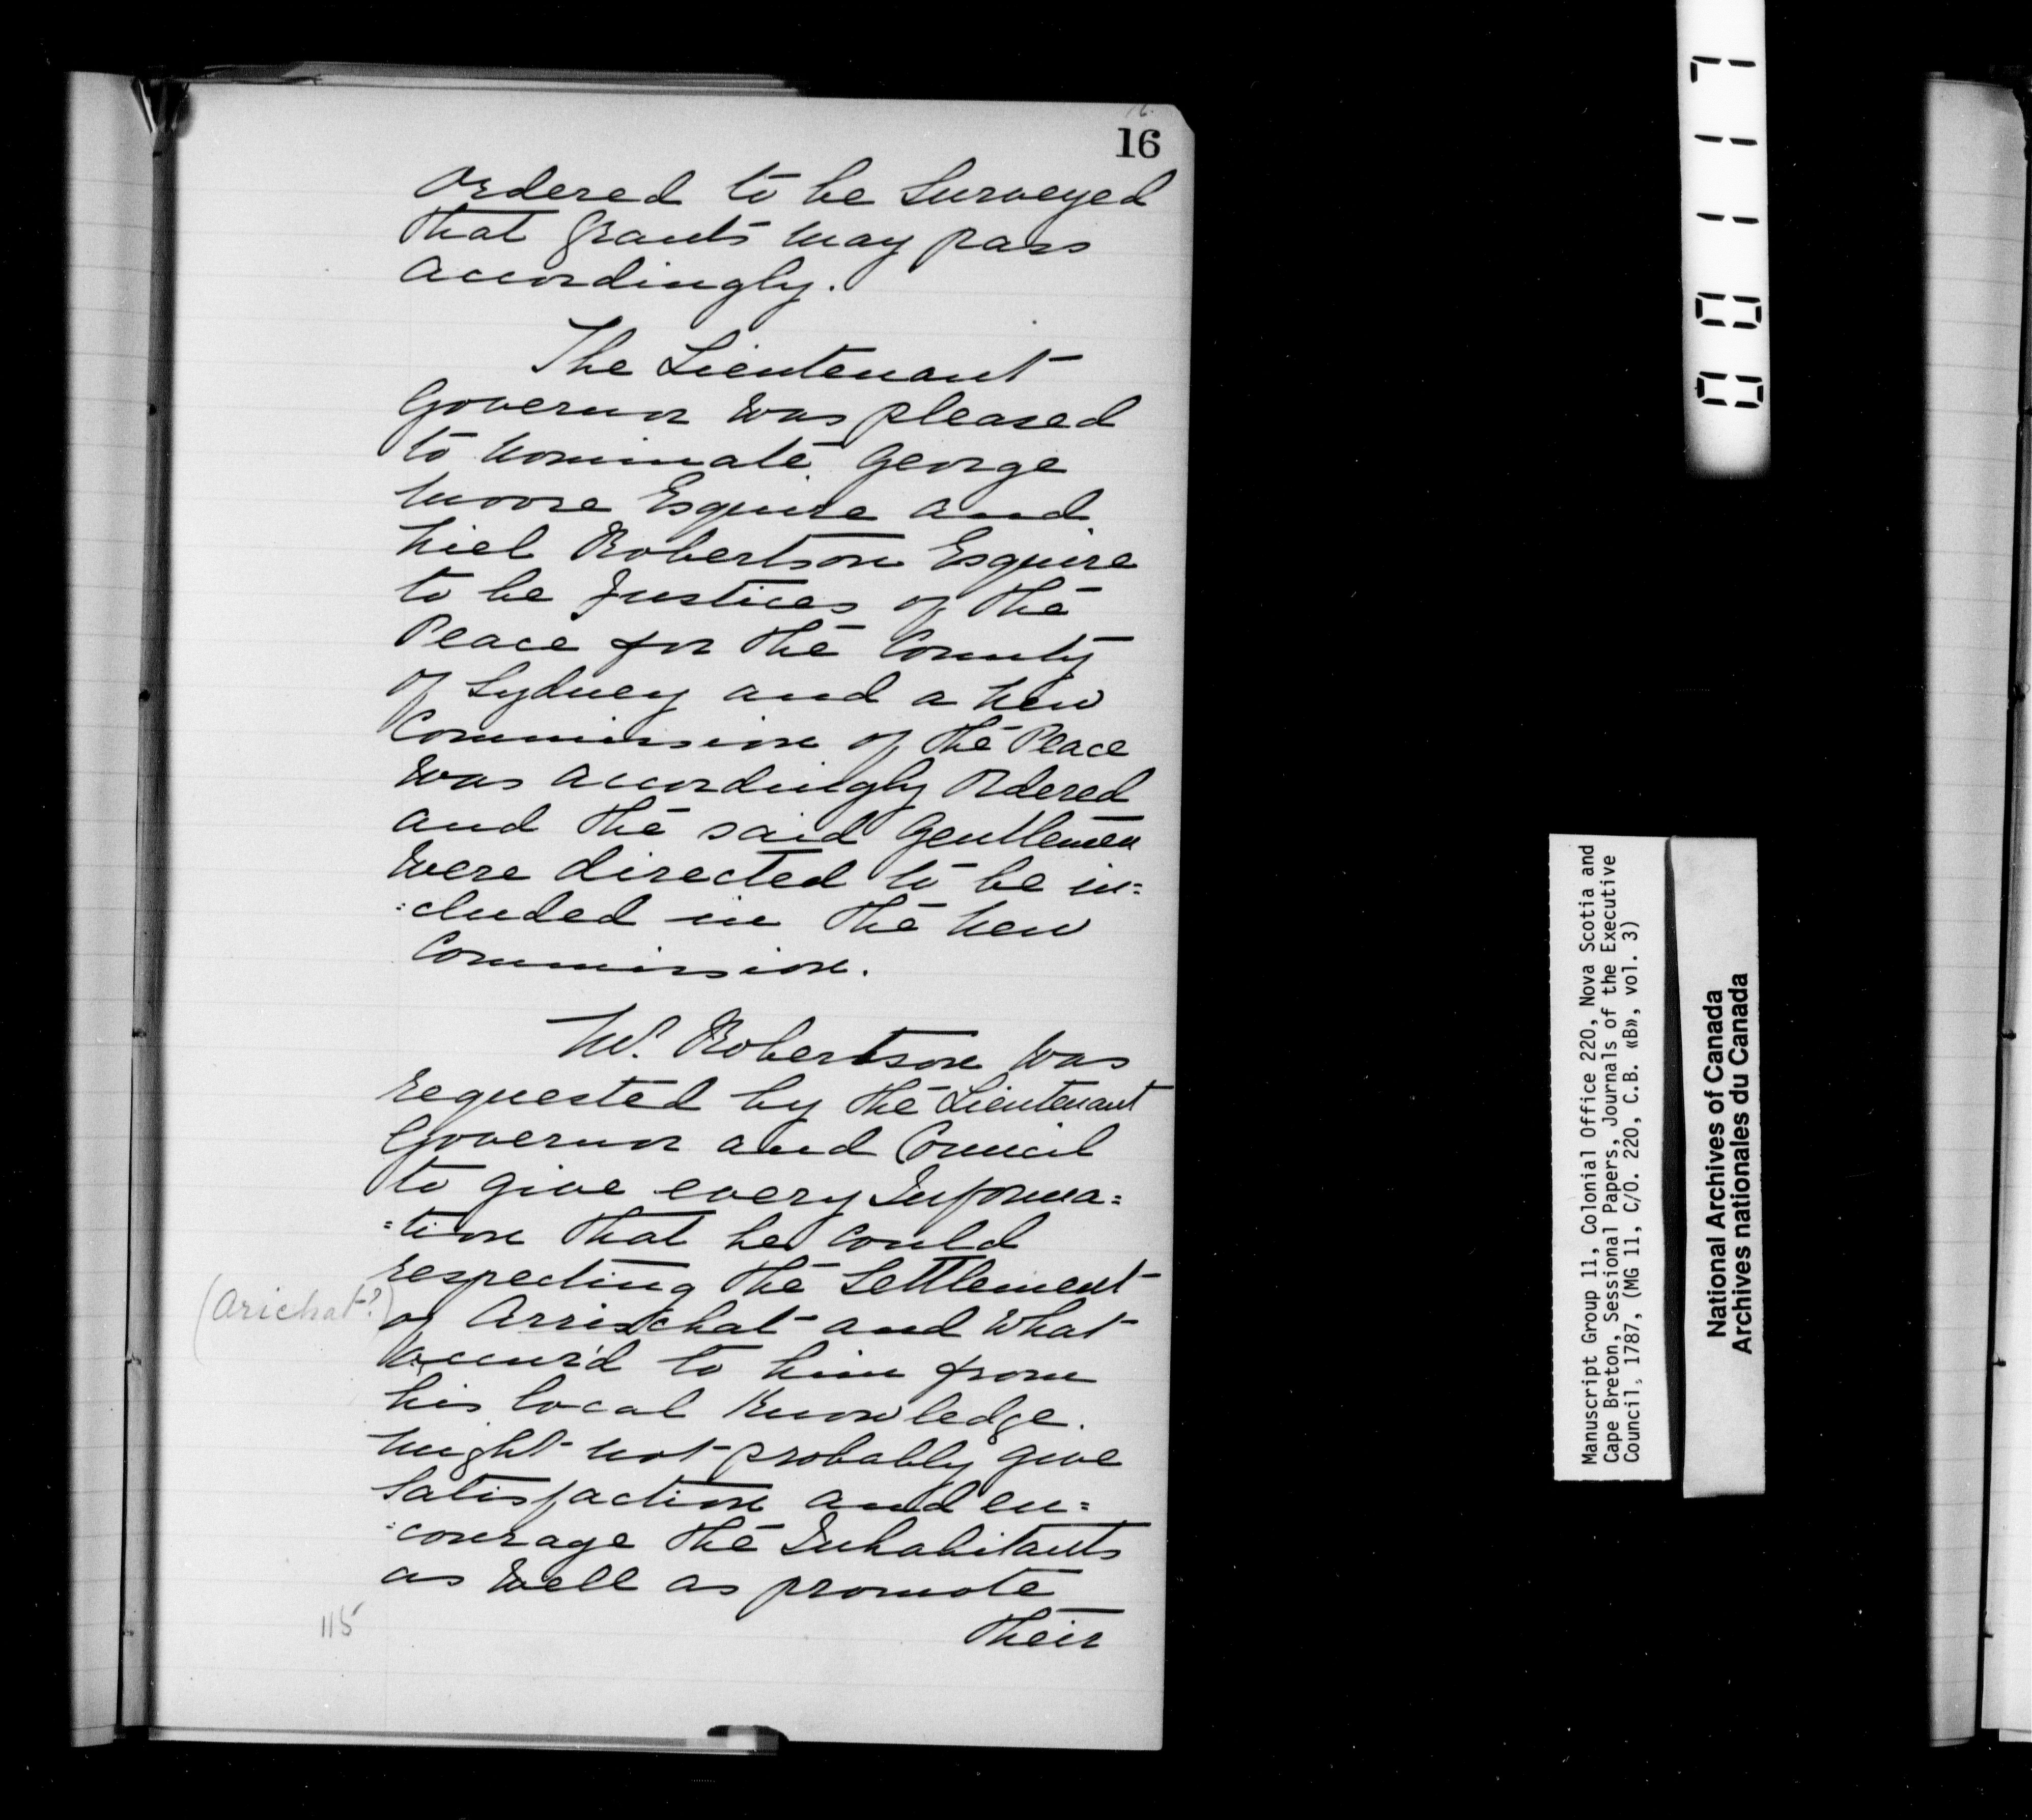 16.
16
Ordered to be Surveyed
that Grants may pass
accordingly.
The Lieutenant
Governor was pleased
to nominate George
Moore Esquire and
Niel Robertson Esquire
to be Justices of the
Peace for the County
of Sydney and a New
Commission of the Peace
was accordingly Ordered
and the said Gentlemen
were directed to be in=
:cluded in the New
Commission.
Mr. Robertson was
requested by the Lieutenant
Governor and Council
to give every Informa=
=tion that he could
respecting the Settlement
(Arichat?)
of Arrischat and what
occur'd to him from
his local Knowledge.
might not probably give
Satisfaction and en=
:courage the Inhabitants
as well as promote
their
115
00117
Manuscript Group 11, Colonial Office 220, Nova Scotia and
Cape Breton, Sessional Papers, Journals of the Executive
Council, 1787, (MG 11, C/O. 220, C.B. «B», vol. 3)
National Archives of Canada
Archives nationales du Canada